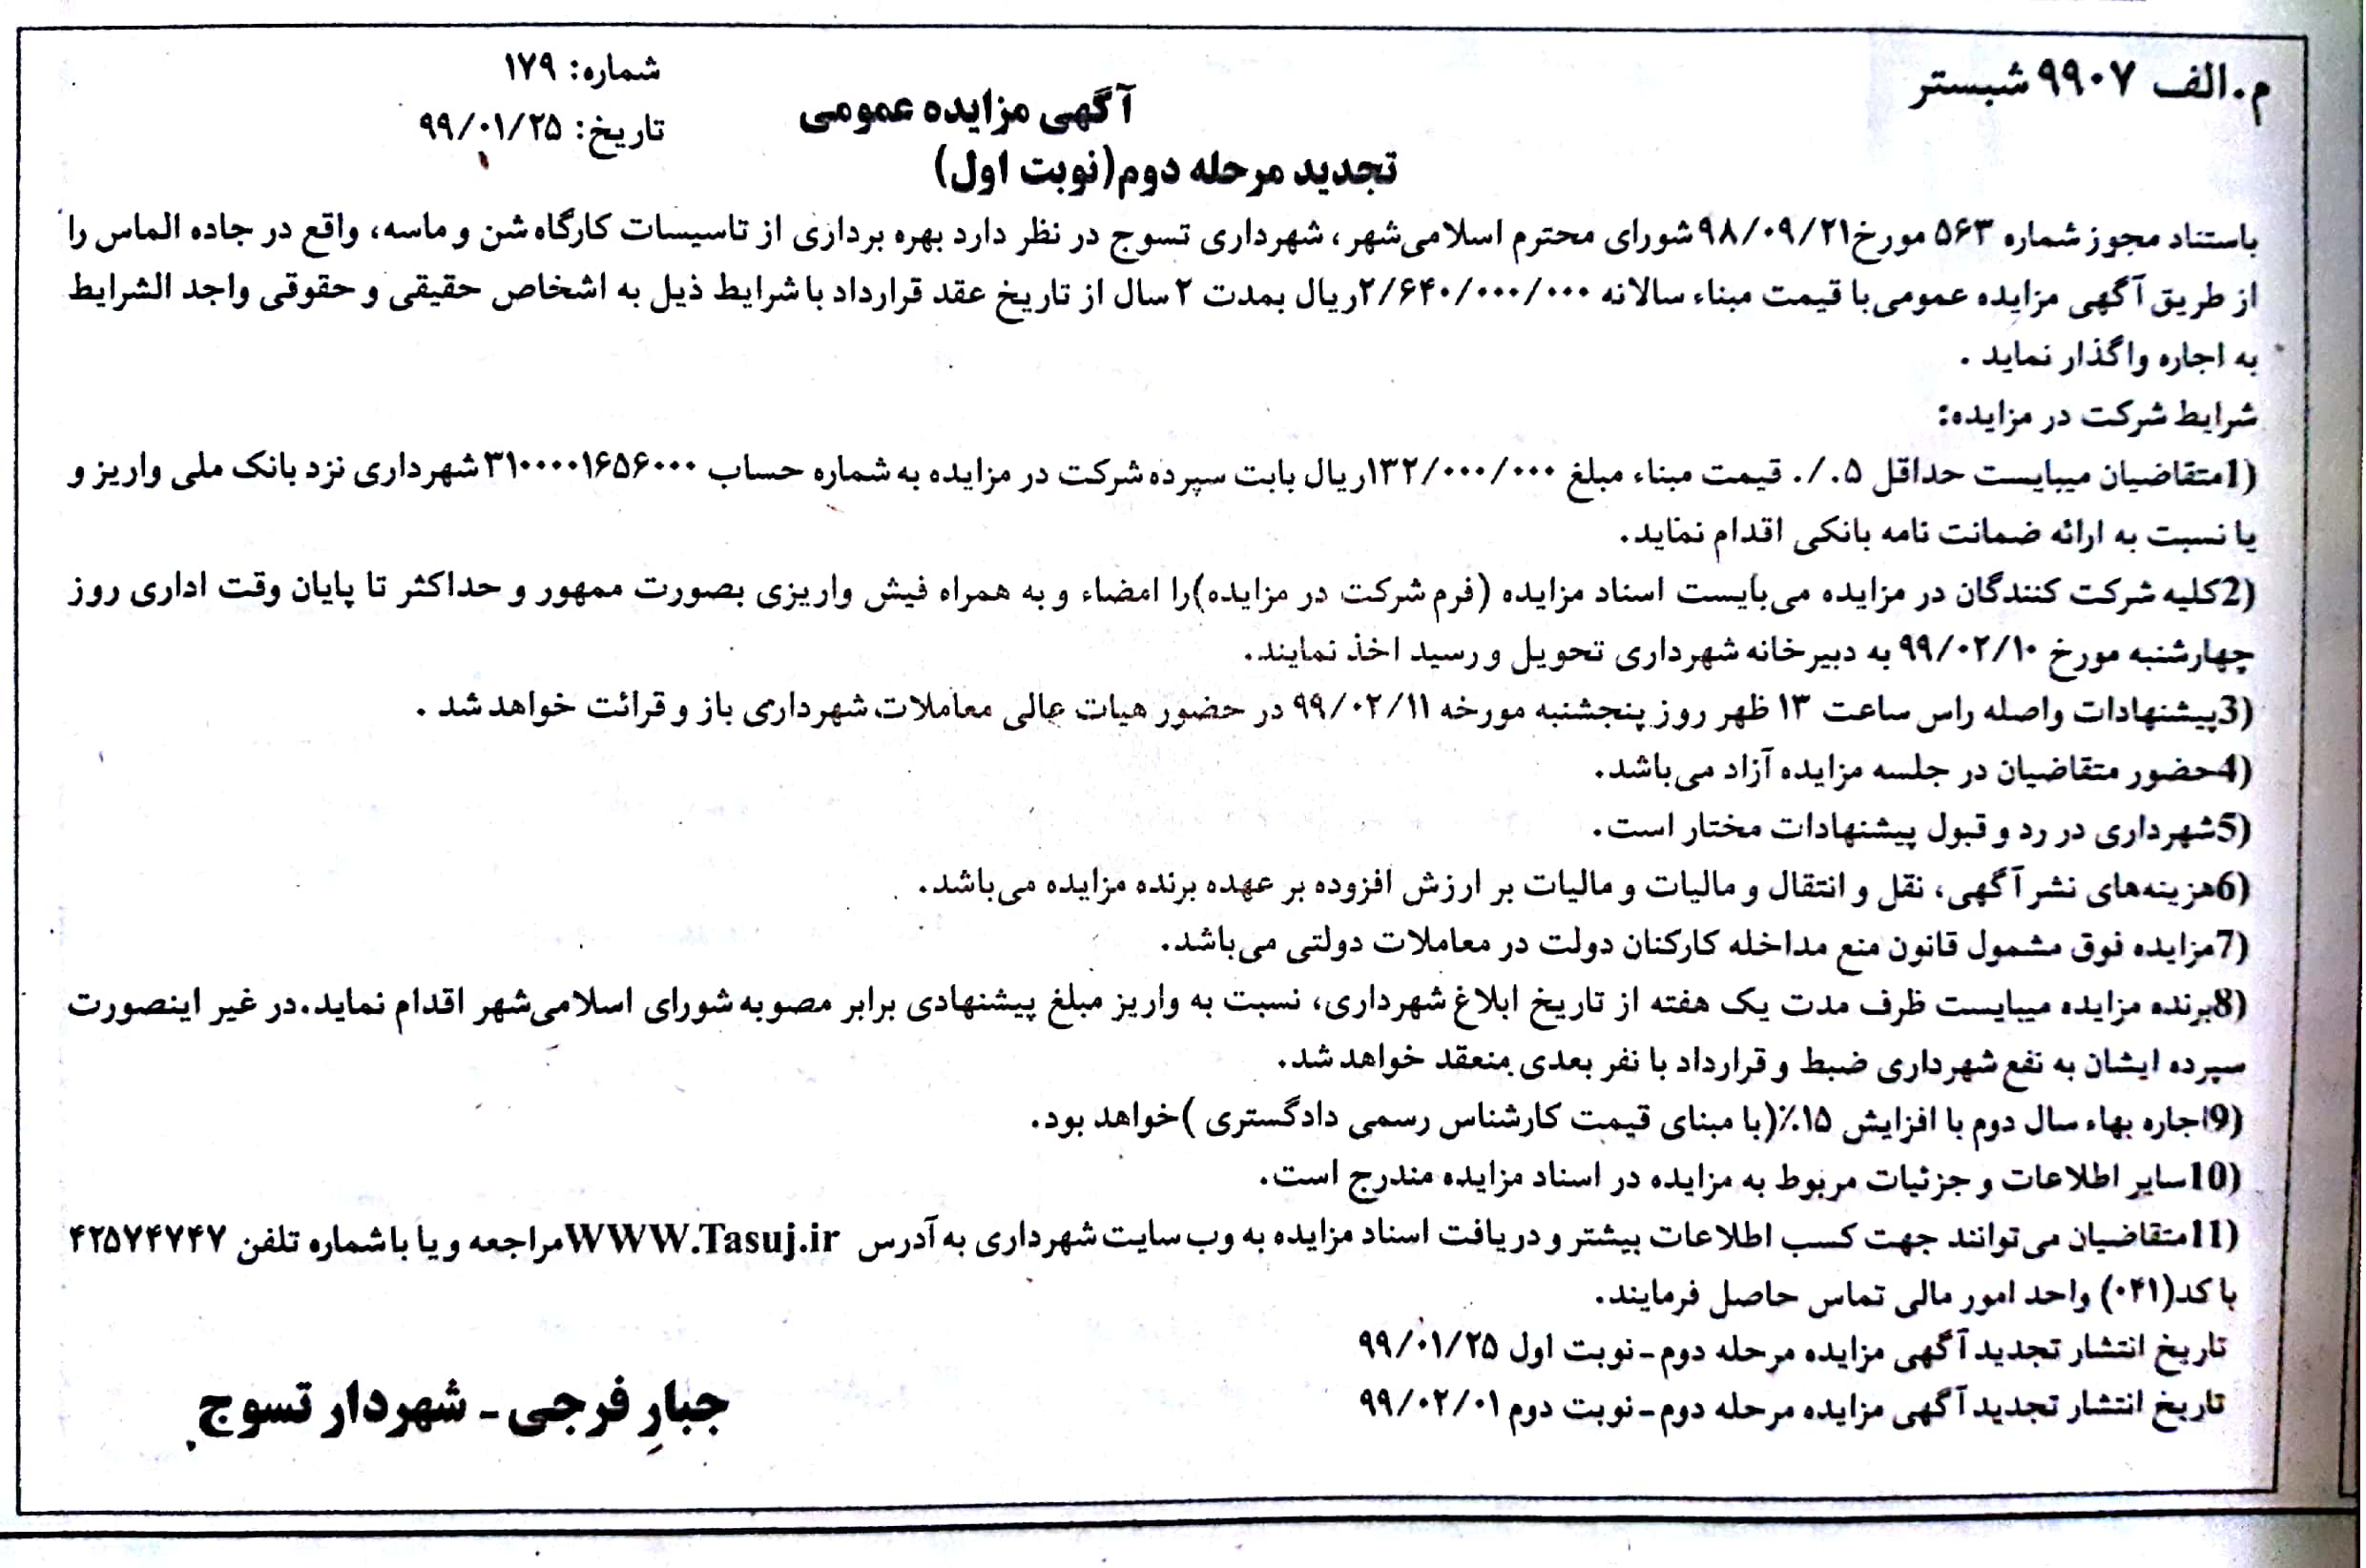 م.الف ۹۹۰۷ شبستر
شماره: ۱۷۹
آگهی مزایده عمومی
تاریخ: ۹۹/۰۱/۲۵
تجدید مرحله دوم(نوبت اول)
باستناد مجوز شماره ۵۶۳ مورخ۹۸/۰۹/۲۱ شورای محترم اسلامی‌شهر، شهرداری تسوج در نظر دارد بهره برداری از تاسیسات کارگاه شن و ماسه، واقع در جاده الماس را
از طریق آگهی مزایده عمومی‌با قیمت مبناء سالانه ۲/۶۴۰/۰۰۰/۰۰۰ریال بمدت ۲ سال از تاریخ عقد قرارداد با شرایط ذیل به اشخاص حقیقی و حقوقی واجد الشرایط
به اجاره واگذار نماید .
شرایط شرکت در مزایده:
1)متقاضیان میبایست حداقل ۵ ./. قیمت مبناء مبلغ ۱۳۲/۰۰۰/۰۰۰ریال بابت سپرده شرکت در مزایده به شماره حساب ۳۱۰۰۰۰۱۶۵۶۰۰۰ شهرداری نزد بانک ملی واریز و
یا نسبت به ارائه ضمانت نامه بانکی اقدام نماید.
2)کلیه شرکت کنندگان در مزایده می‌بایست اسناد مزایده (فرم شرکت در مزایده)را امضاء و به همراه فیش واریزی بصورت ممهور و حداکثر تا پایان وقت اداری روز
چهارشنبه مورخ ۹۹/۰۲/۱۰ به دبیرخانه شهرداری تحویل و رسید اخذ نمایند.
3)پیشنهادات واصله راس ساعت ۱۳ ظهر روز پنجشنبه مورخه ۹۹/۰۲/۱۱ در حضور هیات عالی معاملات شهرداری باز و قرائت خواهد شد .
4)حضور متقاضیان در جلسه مزایده آزاد می‌باشد.
5)شهرداری در رد و قبول پیشنهادات مختار است.
6)هزینه‌های نشر آگهی، نقل و انتقال و مالیات و مالیات بر ارزش افزوده بر عهده برنده مزایده می‌باشد.
7)مزایده فوق مشمول قانون منع مداخله کارکنان دولت در معاملات دولتی می‌باشد.
8)برنده مزایده میبایست ظرف مدت یک هفته از تاریخ ابلاغ شهرداری، نسبت به واریز مبلغ پیشنهادی برابر مصوبه شورای اسلامی‌شهر اقدام نماید.در غیر اینصورت
سپرده ایشان به نفع شهرداری ضبط و قرارداد با نفر بعدی منعقد خواهد شد.
9)اجاره بهاء سال دوم با افزایش ۱۵٪(با مبنای قیمت کارشناس رسمی دادگستری )خواهد بود.
10)سایر اطلاعات و جزئیات مربوط به مزایده در اسناد مزایده مندرج است.
11)متقاضیان می‌توانند جهت کسب اطلاعات بیشتر و دریافت اسناد مزایده به وب سایت شهرداری به آدرس WWW.Tasuj.irمراجعه و یا با شماره تلفن ۴۲۵۷۴۷۴۷
با کد(۰۴۱) واحد امور مالی تماس حاصل فرمایند.
تاریخ انتشار تجدید آگهی مزایده مرحله دوم-نوبت اول ۹۹/۰۱/۲۵
تاریخ انتشار تجدید آگهی مزایده مرحله دوم-نوبت دوم ۹۹/۰۲/۰۱
جبارِ فرجی - شهردار تسوج